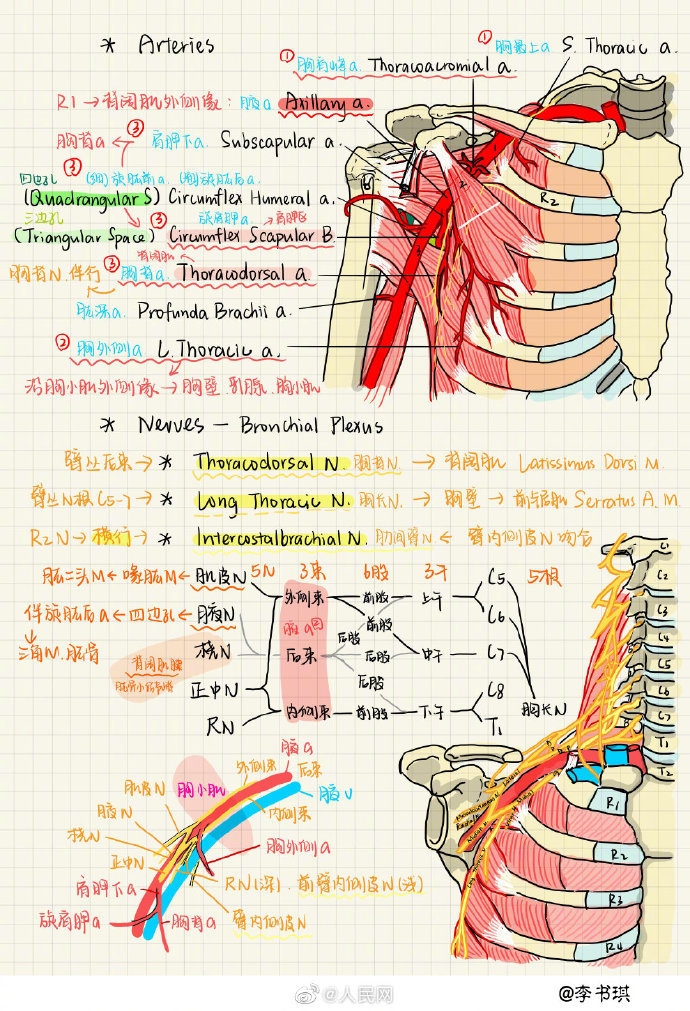 * Arteries
① 胸最上a S. Thoracic a.
① 胸肩峰a. Thoracoacromial a.
R1 → 背阔肌外侧缘: 腋a Axillary a.
胸背a ← ③ 肩胛下a. Subscapular a.
四边孔 ③ (细)旋肱前a. (粗)旋肱后a.
(Quadrangular S) Circumflex Humeral a.
三边孔 ③ 旋肩胛a. → 肩胛区
(Triangular Space) Circumflex Scapular B.
背阔肌
胸背N. 伴行 ③ 胸背a. Thoracodorsal a.
肱深a. Profunda Brachii a.
② 胸外侧a L. Thoracic a.
沿胸小肌外侧缘 → 胸壁. 乳腺. 胸小肌
R2
* Nerves — Bronchial Plexus
臂丛后束 → * Thoracodorsal N. 胸背N. → 背阔肌 Latissimus Dorsi M.
臂丛N根C5-7 → * Long Thoracic N. 胸长N. → 胸壁 → 前锯肌 Serratus A. M.
R2N → 横行 → * Intercostalbrachial N. 肋间臂N ← 臂内侧皮N吻合
肱二头M ← 喙肱M ← 肌皮N 5N 3束 6股 3干 C5 5根
外侧束 前股 上干
伴旋肱后a ← 四边孔 ← 腋N 腋a 前股 C6
后股
三角M. 肱骨 桡N 后束 后股 中干 C7
背阔肌腱
后股
正中N C8
RN 内侧束 前股 下干 T1 胸长N
C1
C2
C3
C4
C5
C6
C7
T1
T2
腋a
外侧束 后束
肌皮N 胸小肌 腋V
腋N 内侧束
桡N 胸外侧a
正中N RN(深). 前臂内侧皮N(浅)
肩胛下a
旋肩胛a 胸背a 臂内侧皮N
R1
R2
R3
R4
@人民网
@李书琪